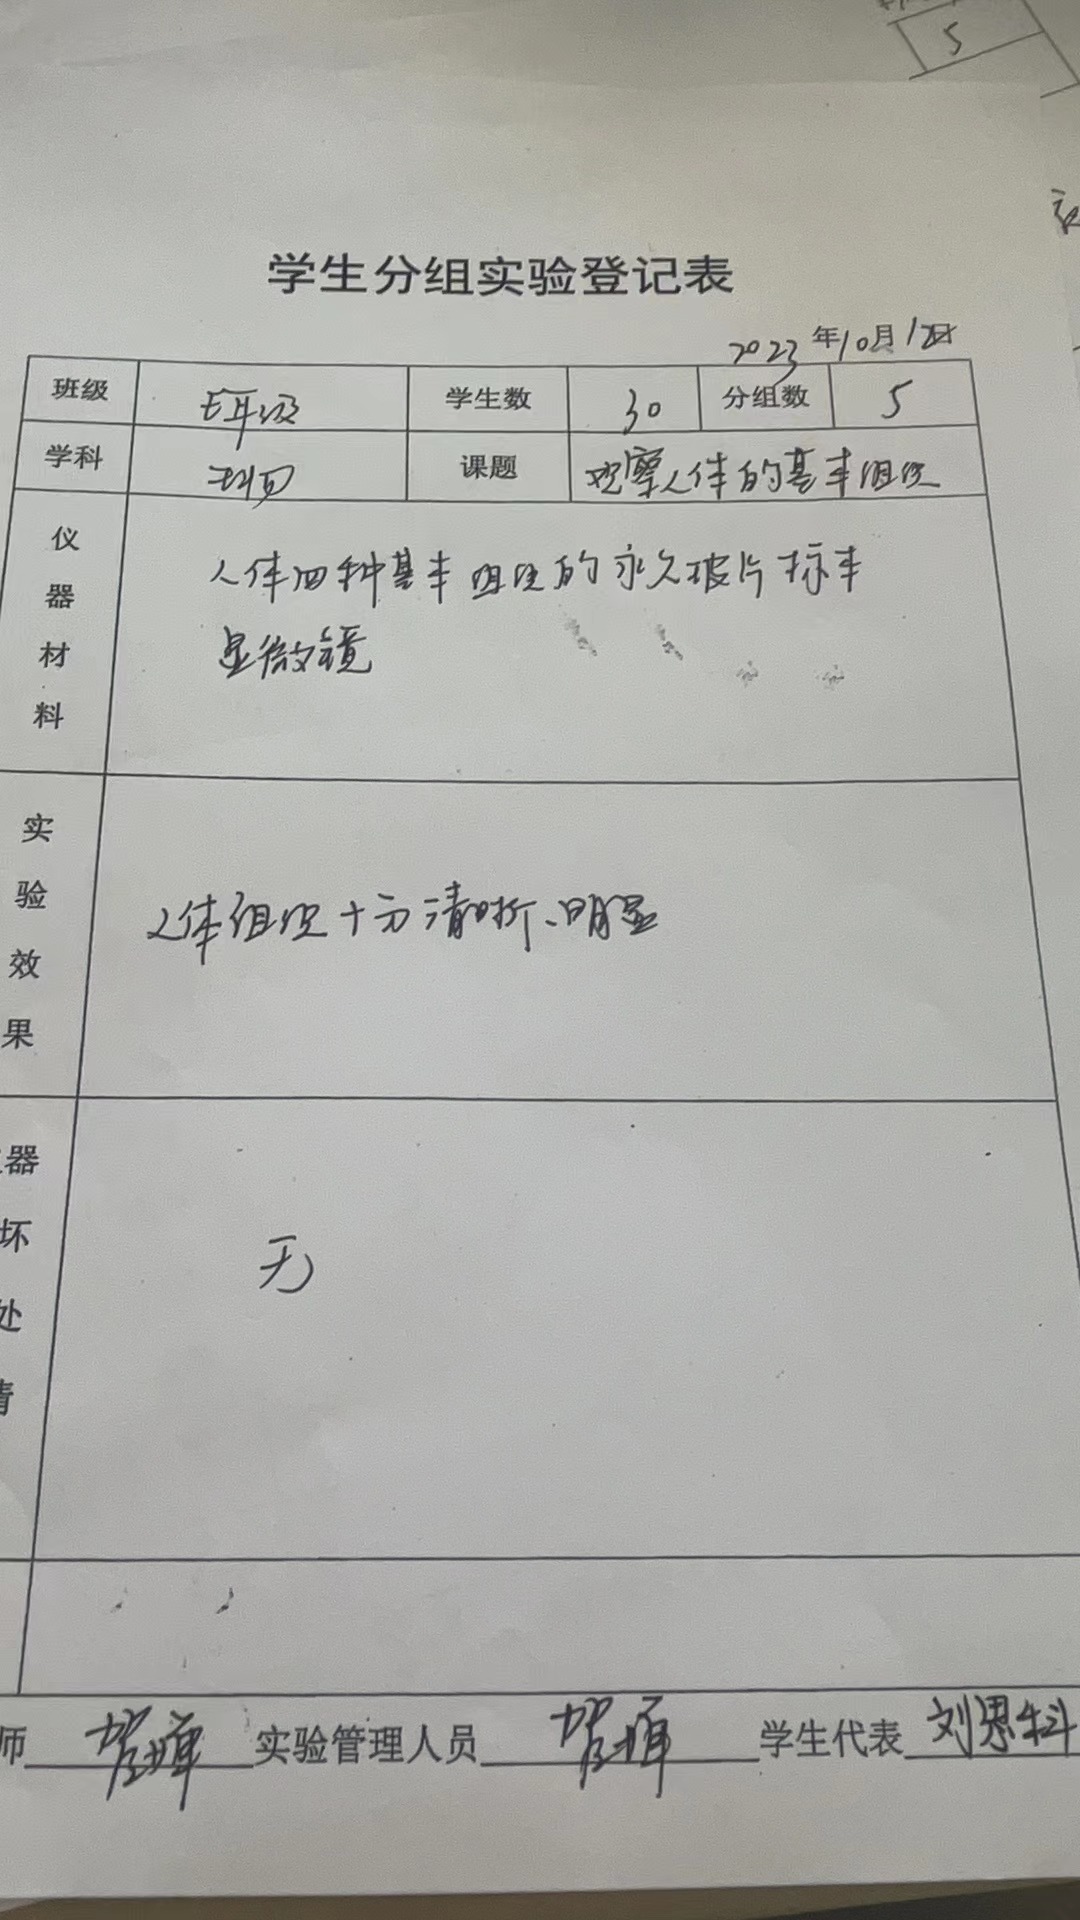 5
学生分组实验登记表
2023年10月12日
班级 七年级 学生数 30 分组数 5
学科 课题 观察人体的基本组织
仪器材料
人体四种基本组织的永久玻片标本
显微镜
实验效果
人体组织十分清晰、明显
器
坏
处
情
无
师 实验管理人员 学生代表 刘思科